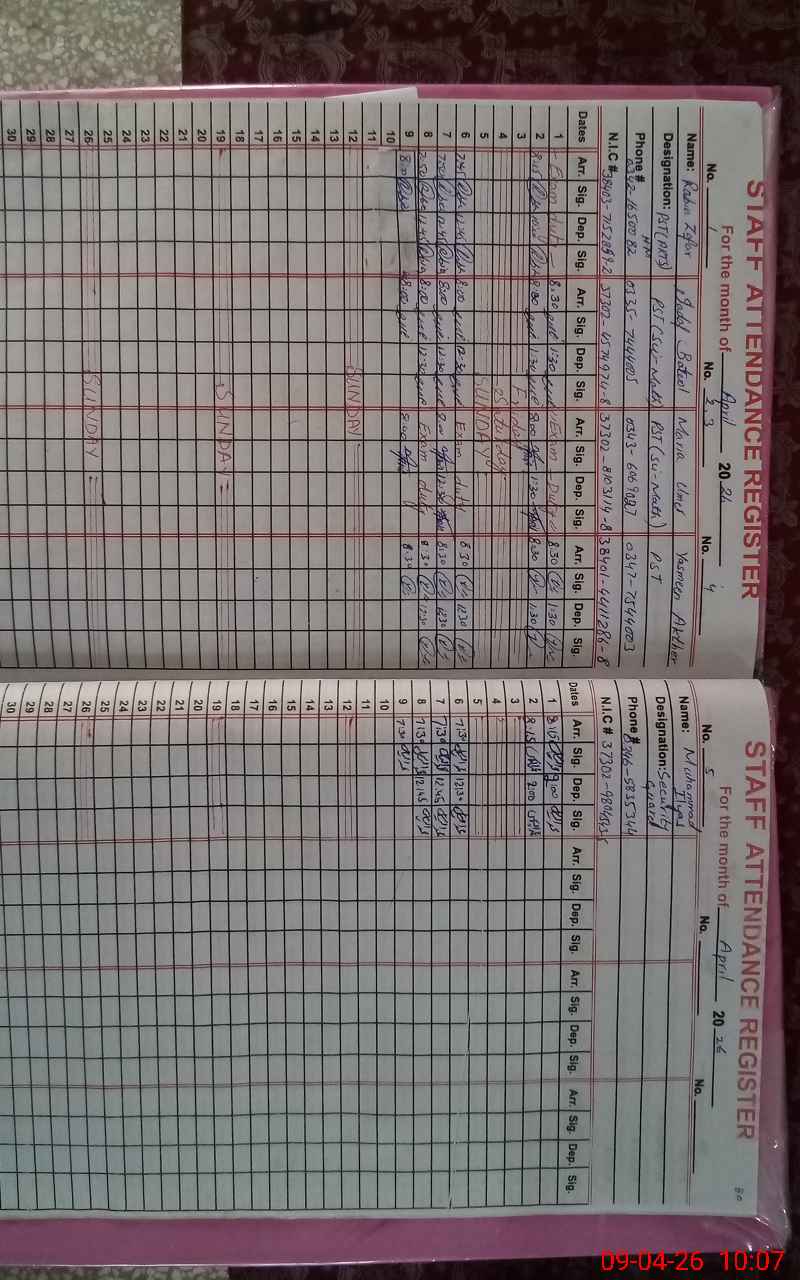 STAFF ATTENDANCE REGISTER
For the month of April 2026
No. 1 No. 2,3 No. 4
Name: Rabia Zafar Batool Maria Umer Yasmeen Akther
Designation: PST(ARTS) PST(Sci-Math) PST(Sci-Math) PST
HM
Phone # 0342-1650082 0335-7444005 0343-6069027 0347-7544003
N.I.C # 38403-7152899-2 37302-4574974-8 37302-8103114-8 38401-4411286-8
Dates Arr. Sig. Dep. Sig. Arr. Sig. Dep. Sig. Arr. Sig. Dep. Sig. Arr. Sig. Dep. Sig.
1 - Exam duty - 8.30 1:30 Exam Duty 8.30 1:30
2 8:15 8:00 1:30 8:00 1:30 8:30 1:30
3 Friday
4 Saturday
5 SUNDAY
6 7:45 12:45 8:00 12:30 Exam duty 8:30 12:30
7 7:50 12:45 8:00 12:30 8:00 12:30 8:30 12:30
8 7:50 12:45 8:00 12:30 Exam duty 8:30 12:30
9 8:00 8:00 8:00 8:30
10
11
12 SUNDAY
13
14
15
16
17
18
19 SUNDAY
20
21
22
23
24
25
26 SUNDAY
27
28
29
30
80
STAFF ATTENDANCE REGISTER
For the month of April 2026
No. 5 No. No.
Name: Muhammad Ilyas
Designation: Security Guard
Phone # 0346-5835344
N.I.C # 37302-
Dates Arr. Sig. Dep. Sig. Arr. Sig. Dep. Sig. Arr. Sig. Dep. Sig. Arr. Sig. Dep. Sig.
1 8:15 2:00
2 8:15 2:00
3
4
5
6 7:30 12:30
7 7:30 12:45
8 7:30 12:45
9 7:30
10
11
12
13
14
15
16
17
18
19
20
21
22
23
24
25
26
27
28
29
30
09-04-26 10:07